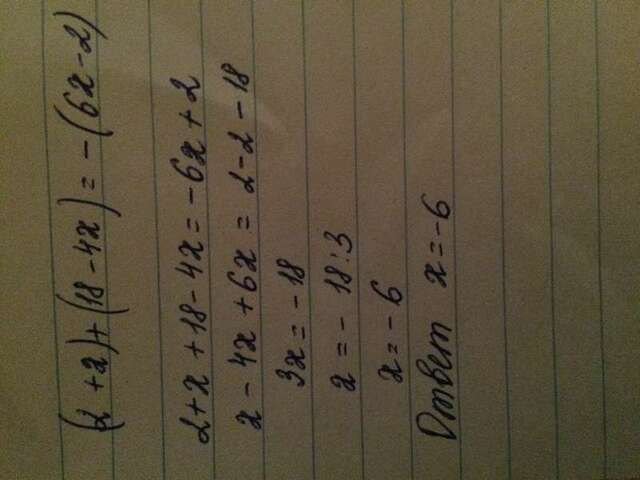 (2 + x) + (18 - 4x) = - (6x - 2)
2 + x + 18 - 4x = -6x + 2
x - 4x + 6x = 2 - 2 - 18
3x = -18
x = - 18 : 3
x = - 6
Ответ x = -6